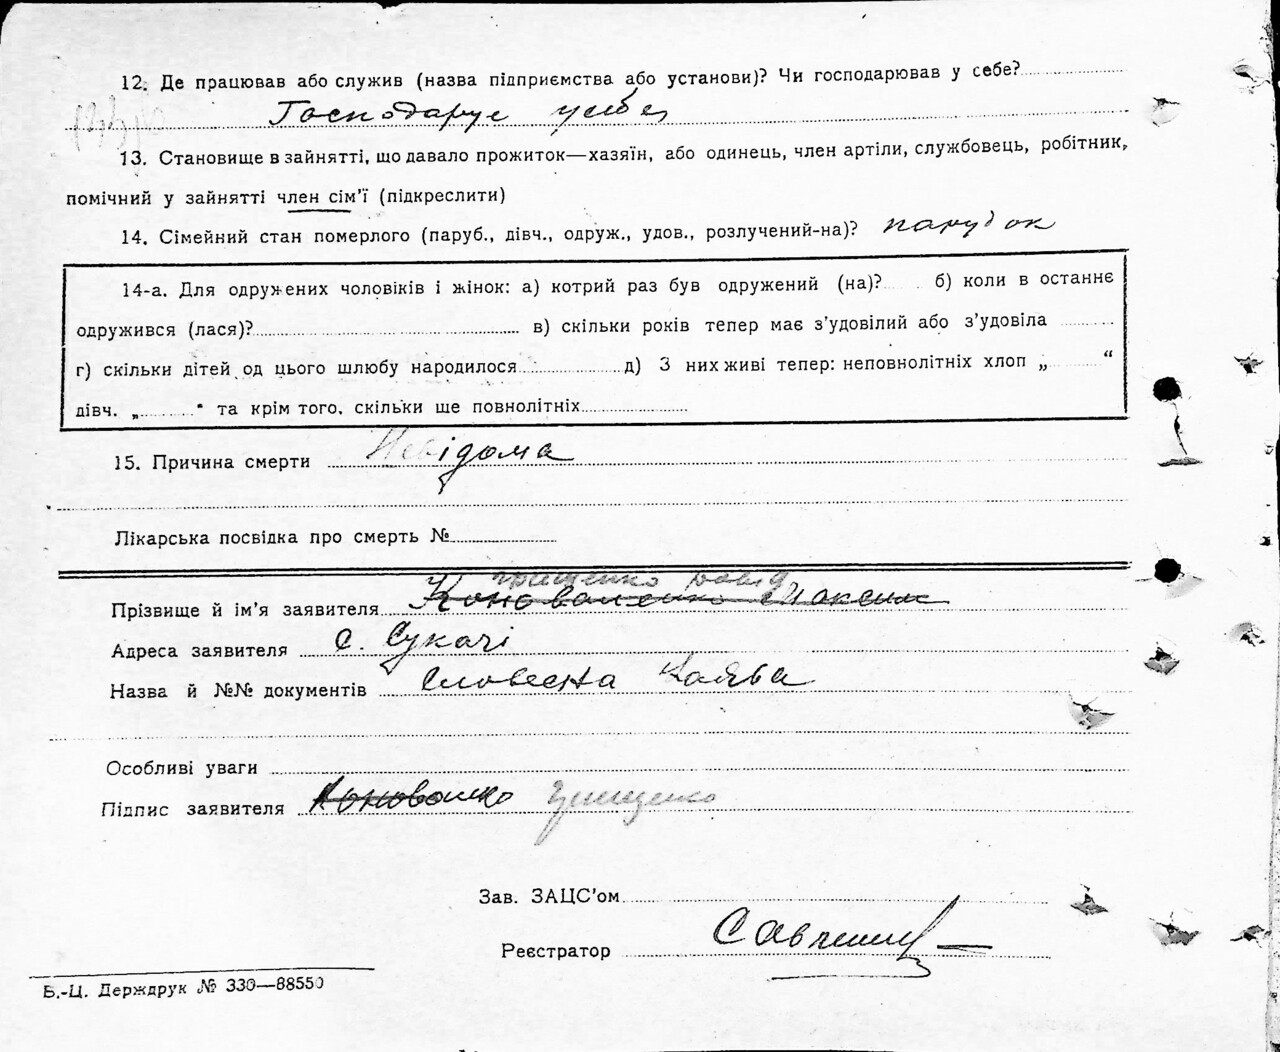 12. Де працював або служив (назва підприємства або установи)? Чи господарював у себе?
Господарує у себе
13. Становище в зайнятті, що давало прожиток—хазяїн, або одинець, член артіли, службовець, робітник,
помічний у зайнятті член сім'ї (підкреслити)
14. Сімейний стан померлого (паруб., дівч., одруж., удов., розлучений-на)? парубок
14-а. Для одружених чоловіків і жінок: а) котрий раз був одружений (на)? б) коли в останнє
одружився (лася)? в) скільки років тепер має з'удовілий або з'удовіла
г) скільки дітей од цього шлюбу народилося д) З них живі тепер: неповнолітніх хлоп „ “
дівч. „ “ та крім того, скільки ще повнолітніх
15. Причина смерти Невідома
Лікарська посвідка про смерть №
Грищенко Давід
Прізвище й ім'я заявителя Коноваленко Максим
Адреса заявителя с. Сукачі
Назва й №№ документів Словесна заява
Особливі уваги
Підпис заявителя Коновалко Грищенко
Зав. ЗАЦС'ом
Реєстратор
Б.-Ц. Держдрук № 330—88550